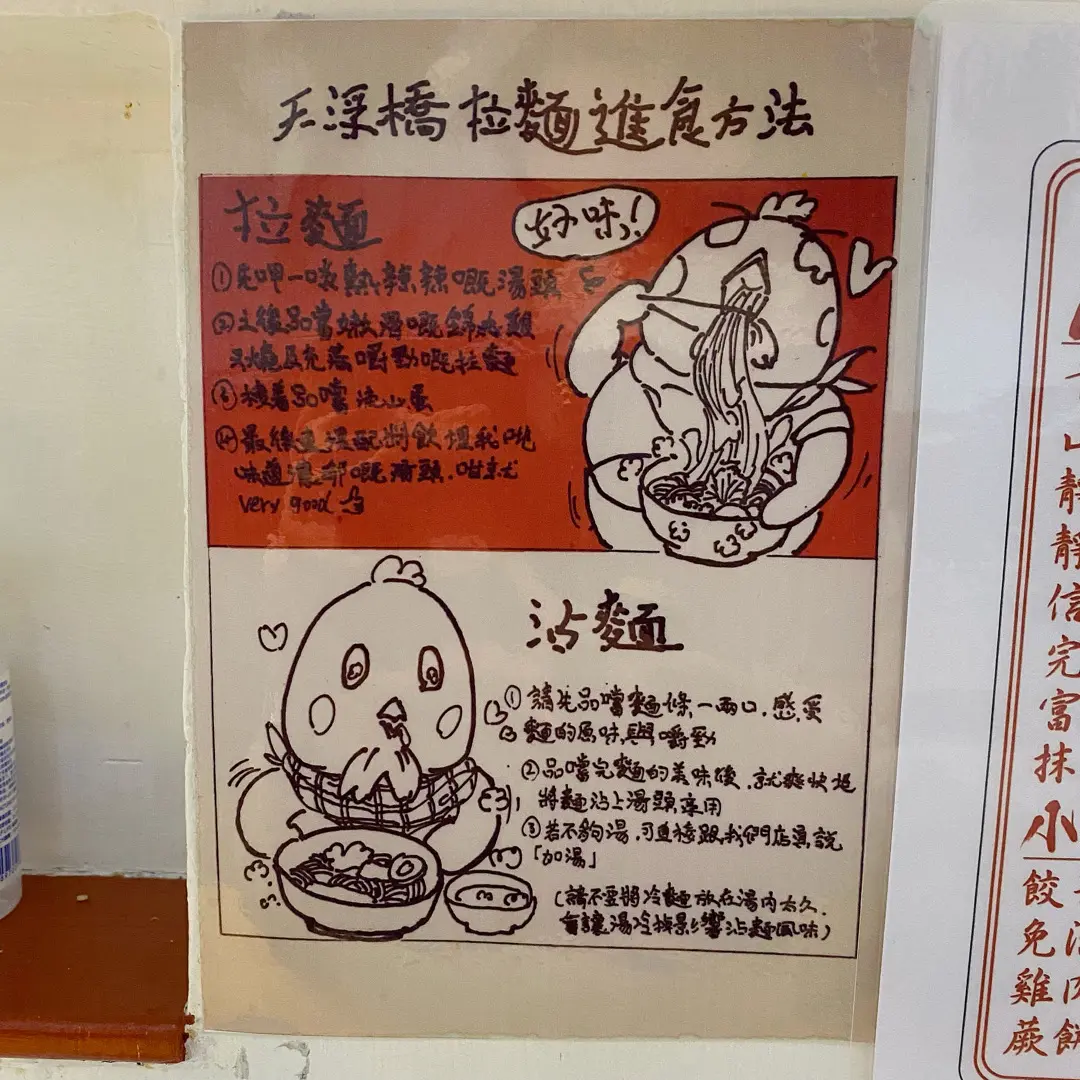 天浮橋拉麵進食方法
拉麵
好味!
①先呷一啖熱辣辣嘅湯頭
②之後品嚐嫩滑嘅
叉燒及充滿嚼勁嘅拉麵
③接着品嚐流心蛋
④最後直接
味道濃郁嘅湯頭.咁就
very good
沾麵
①請先品嚐麵條一兩口.感受
麵的原味與嚼勁
②品嚐完麵的美味後.就爽快地
將麵沾上湯頭享用
③若不夠湯.可直接跟我們店員說
「加湯」
(請不要將冷麵放在湯內太久.
會讓湯冷掉影響沾麵風味)
靜
靜
信
完
富
抹
小
餃
免
雞
蕨